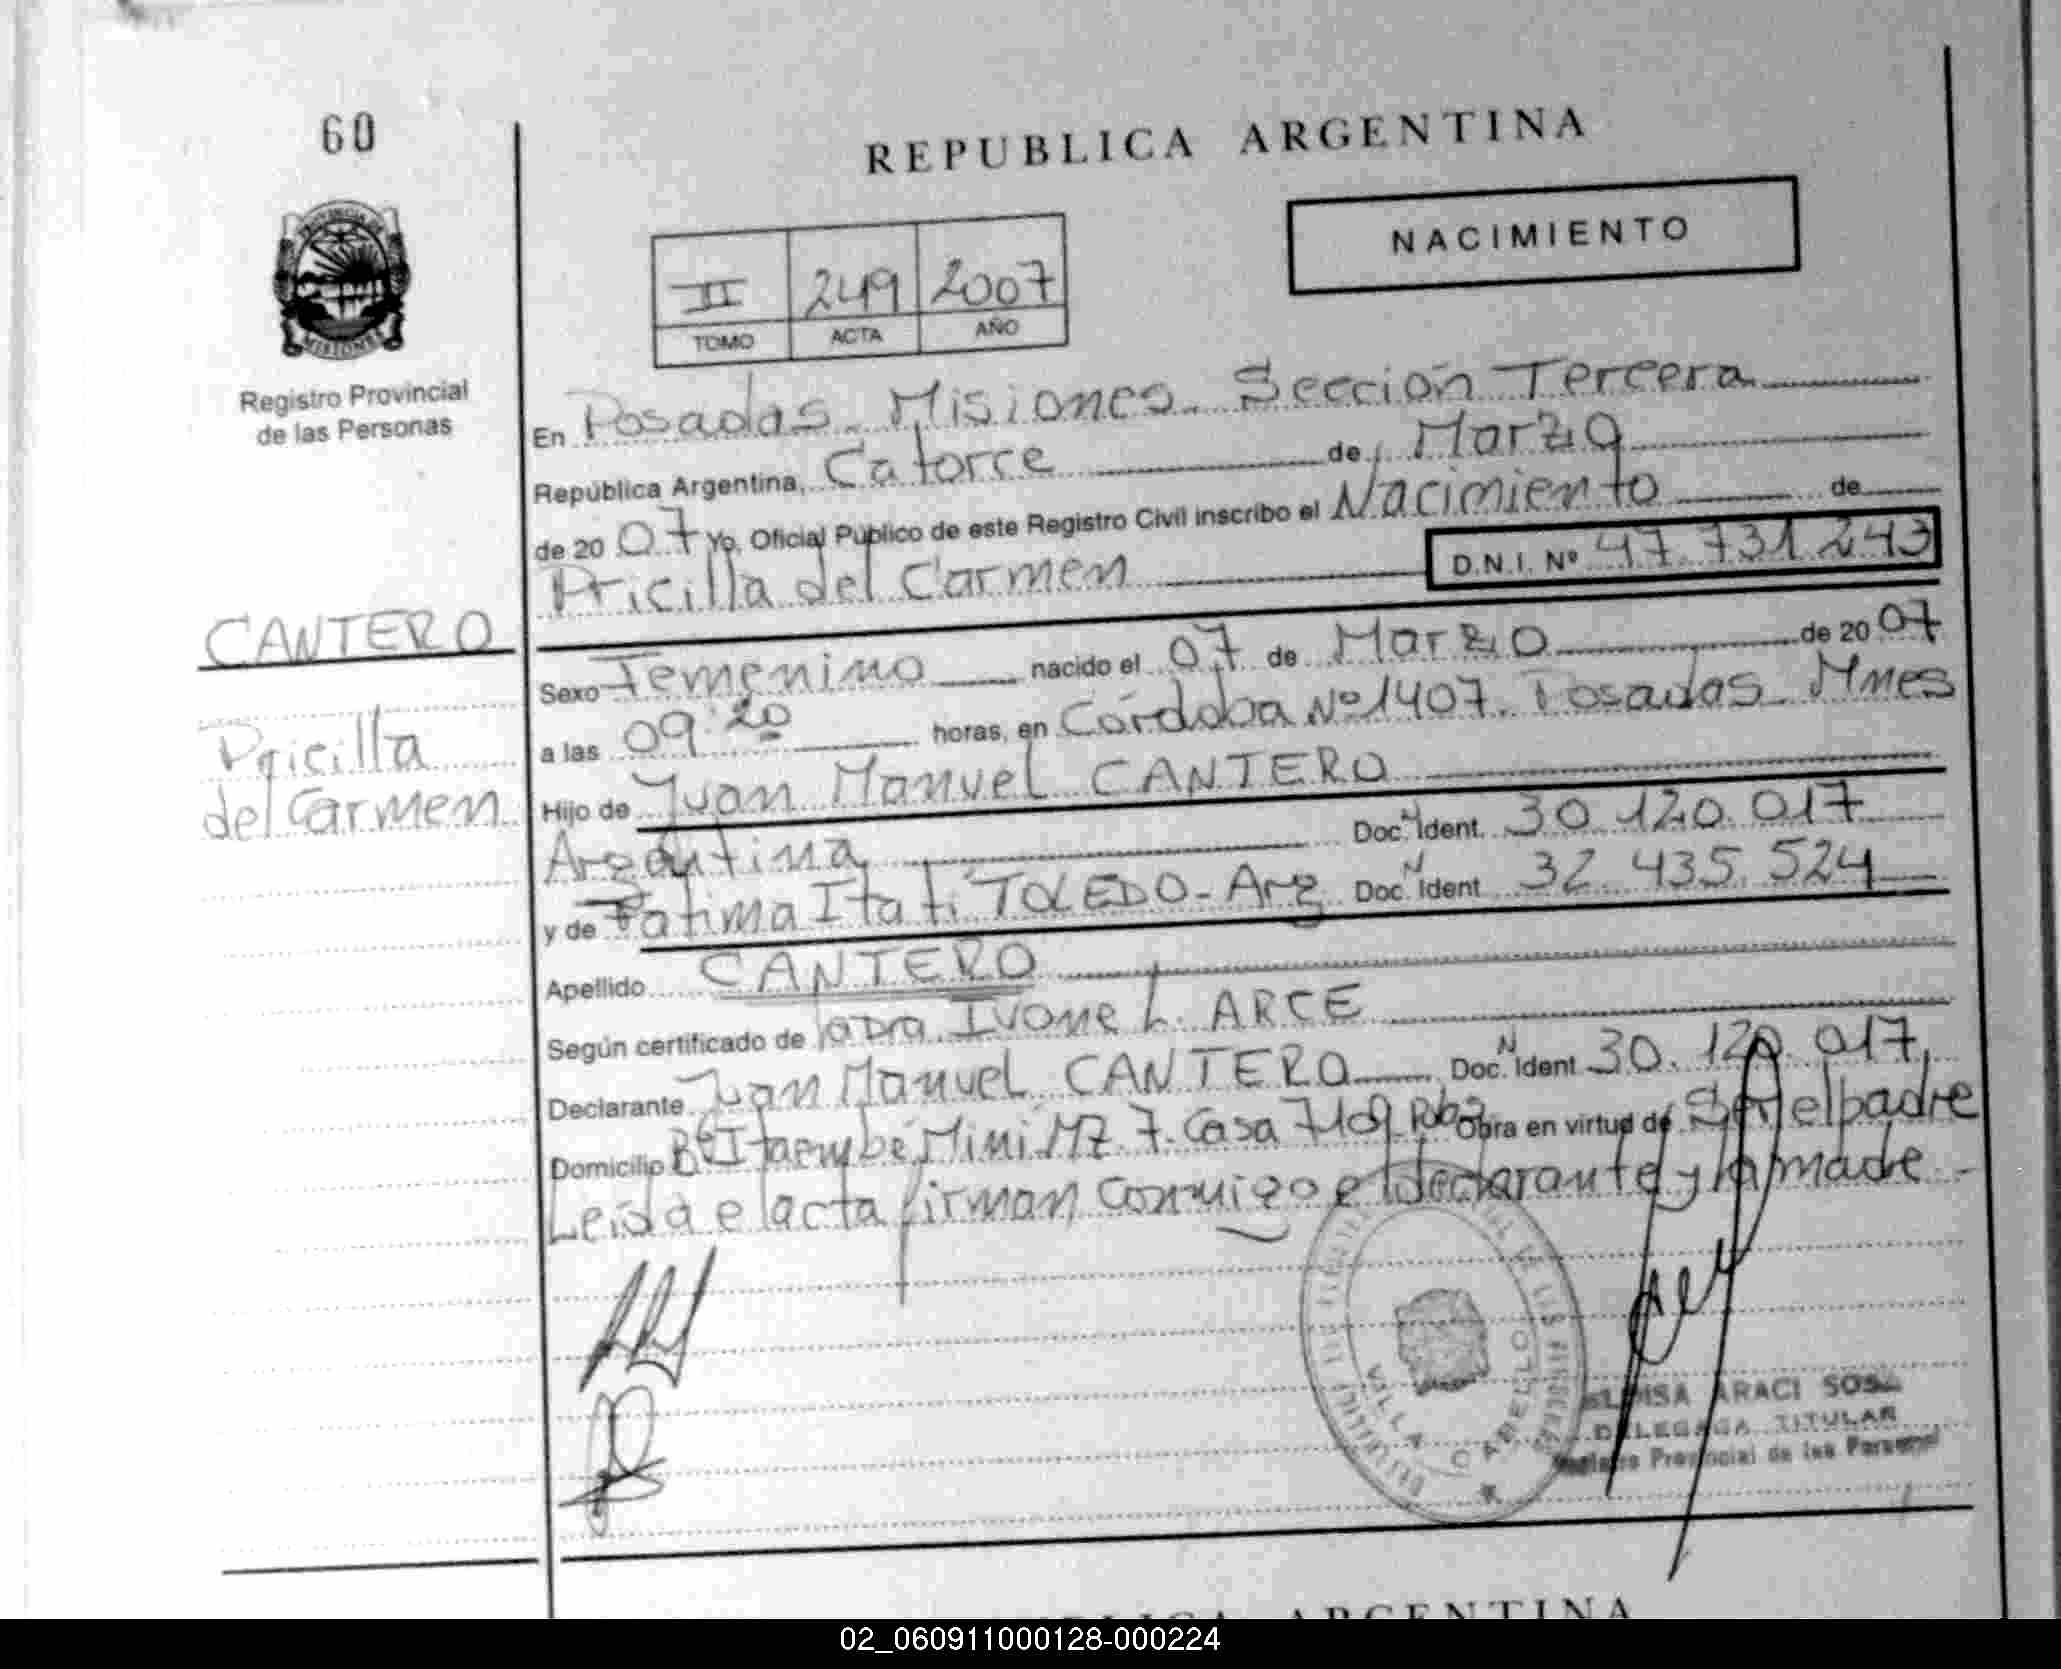 60
REPUBLICA ARGENTINA
NACIMIENTO
II 249 2007
TOMO ACTA AÑO
PROVINCIA DE
MISIONES
Registro Provincial
de las Personas
En Posadas Misiones. Sección Tercera
República Argentina, Catorce de Marzo
de 20 07 Yo, Oficial Público de este Registro Civil inscribo el Nacimiento de
Pricilla del Carmen D.N.I. Nº 47.731.243
CANTERO
Pricilla
del Carmen
Sexo Femenino nacido el 07 de Marzo de 20 07
a las 09:20 horas, en Córdoba Nº 1407. Posadas Mnes
Hijo de Juan Manuel CANTERO
Argentina Doc. N Ident. 30.120.017
y de Fatima Itati TOLEDO - Arg Doc. N Ident 32.435.524
Apellido CANTERO
Según certificado de la Dra Ivone L. ARCE
Declarante Juan Manuel CANTERO Doc. N Ident 30.120.017
Domicilio Bº Itaembé Mini MZ. 7. Casa Obra en virtud de Ser el padre
Leida el acta firman conmigo el declarante y la madre
VILLA CABELLO
ARACI SOSA
DELEGADA TITULAR
Registro Provincial de las Personas
REPUBLICA ARGENTINA
02_060911000128-000224